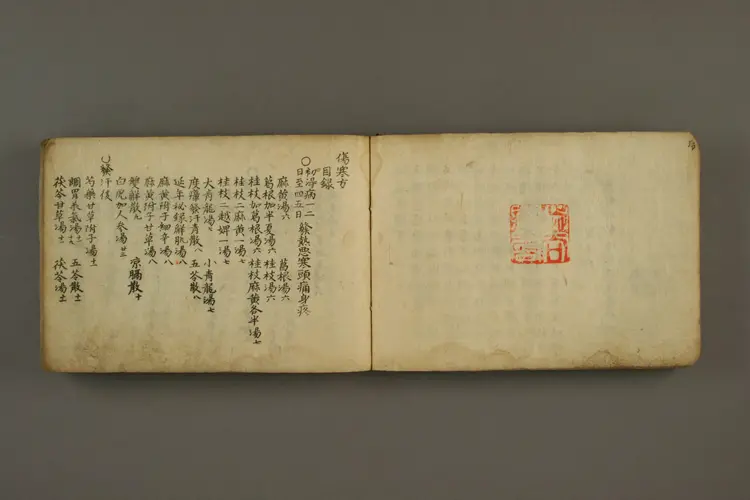 傷寒方
目録
○初得病一二日至四五日 發熱惡寒頭痛身疼
麻黄湯六 葛根湯六
葛根加半夏湯六 桂枝湯六
桂枝加葛根湯六 桂枝麻黄各半湯七
桂枝二麻黄一湯七
桂枝二越婢一湯七
大青龍湯七 小青龍湯七
度瘴發汗青散八 五苓散八
延年秘録解肌湯八
麻黄附子細辛湯八
麻黄附子甘草湯八
雙解散九 京腸散十
白虎加人参湯廿三
○發汗後
芍藥甘草附子湯十一
調胃承氣湯 五苓散十一
茯苓甘草湯十一 茯苓湯十一